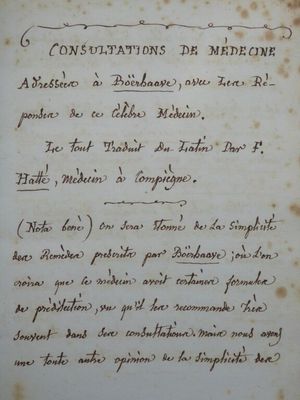 CONSULTATIONS DE MÉDECINE
Adressées à Böerhaave, avec Les Ré-
ponses de ce Célèbre Médecin.
Le tout Traduit du Latin Par F.
Hatté, Médecin à Compiègne.
(Nota benè) on sera étonné de La simplicité
des Remèdes prescrits par Böerhaave; où l'on
voira que ce médecin avoit certaines formules
de prédilection, vu qu'il les recommande très
souvent dans ses consultations. mais nous avons
une toute autre opinion de la simplicité des